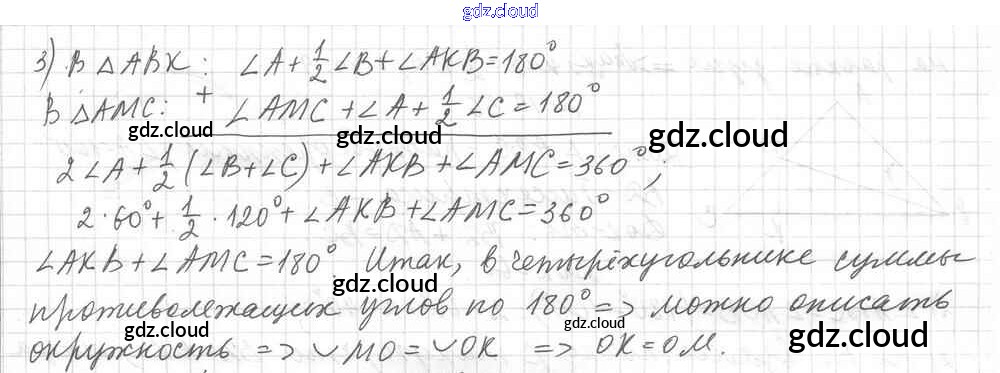 gdz.cloud
3) В △ABK: ∠A + 1/2 ∠B + ∠AKB = 180°
В △AMC: + ∠AMC + ∠A + 1/2 ∠C = 180°
gdz.cloud gdz.cloud gdz.cloud
2∠A + 1/2 (∠B + ∠C) + ∠AKB + ∠AMC = 360°;
2·60° + 1/2 · 120° + ∠AKB + ∠AMC = 360°
∠AKB + ∠AMC = 180°. Итак, в четырёхугольнике суммы
gdz.cloud
противолежащих углов по 180° => можно описать
gdz.cloud gdz.cloud
окружность => ◡MO = ◡OK => OK = OM.
gdz.cloud